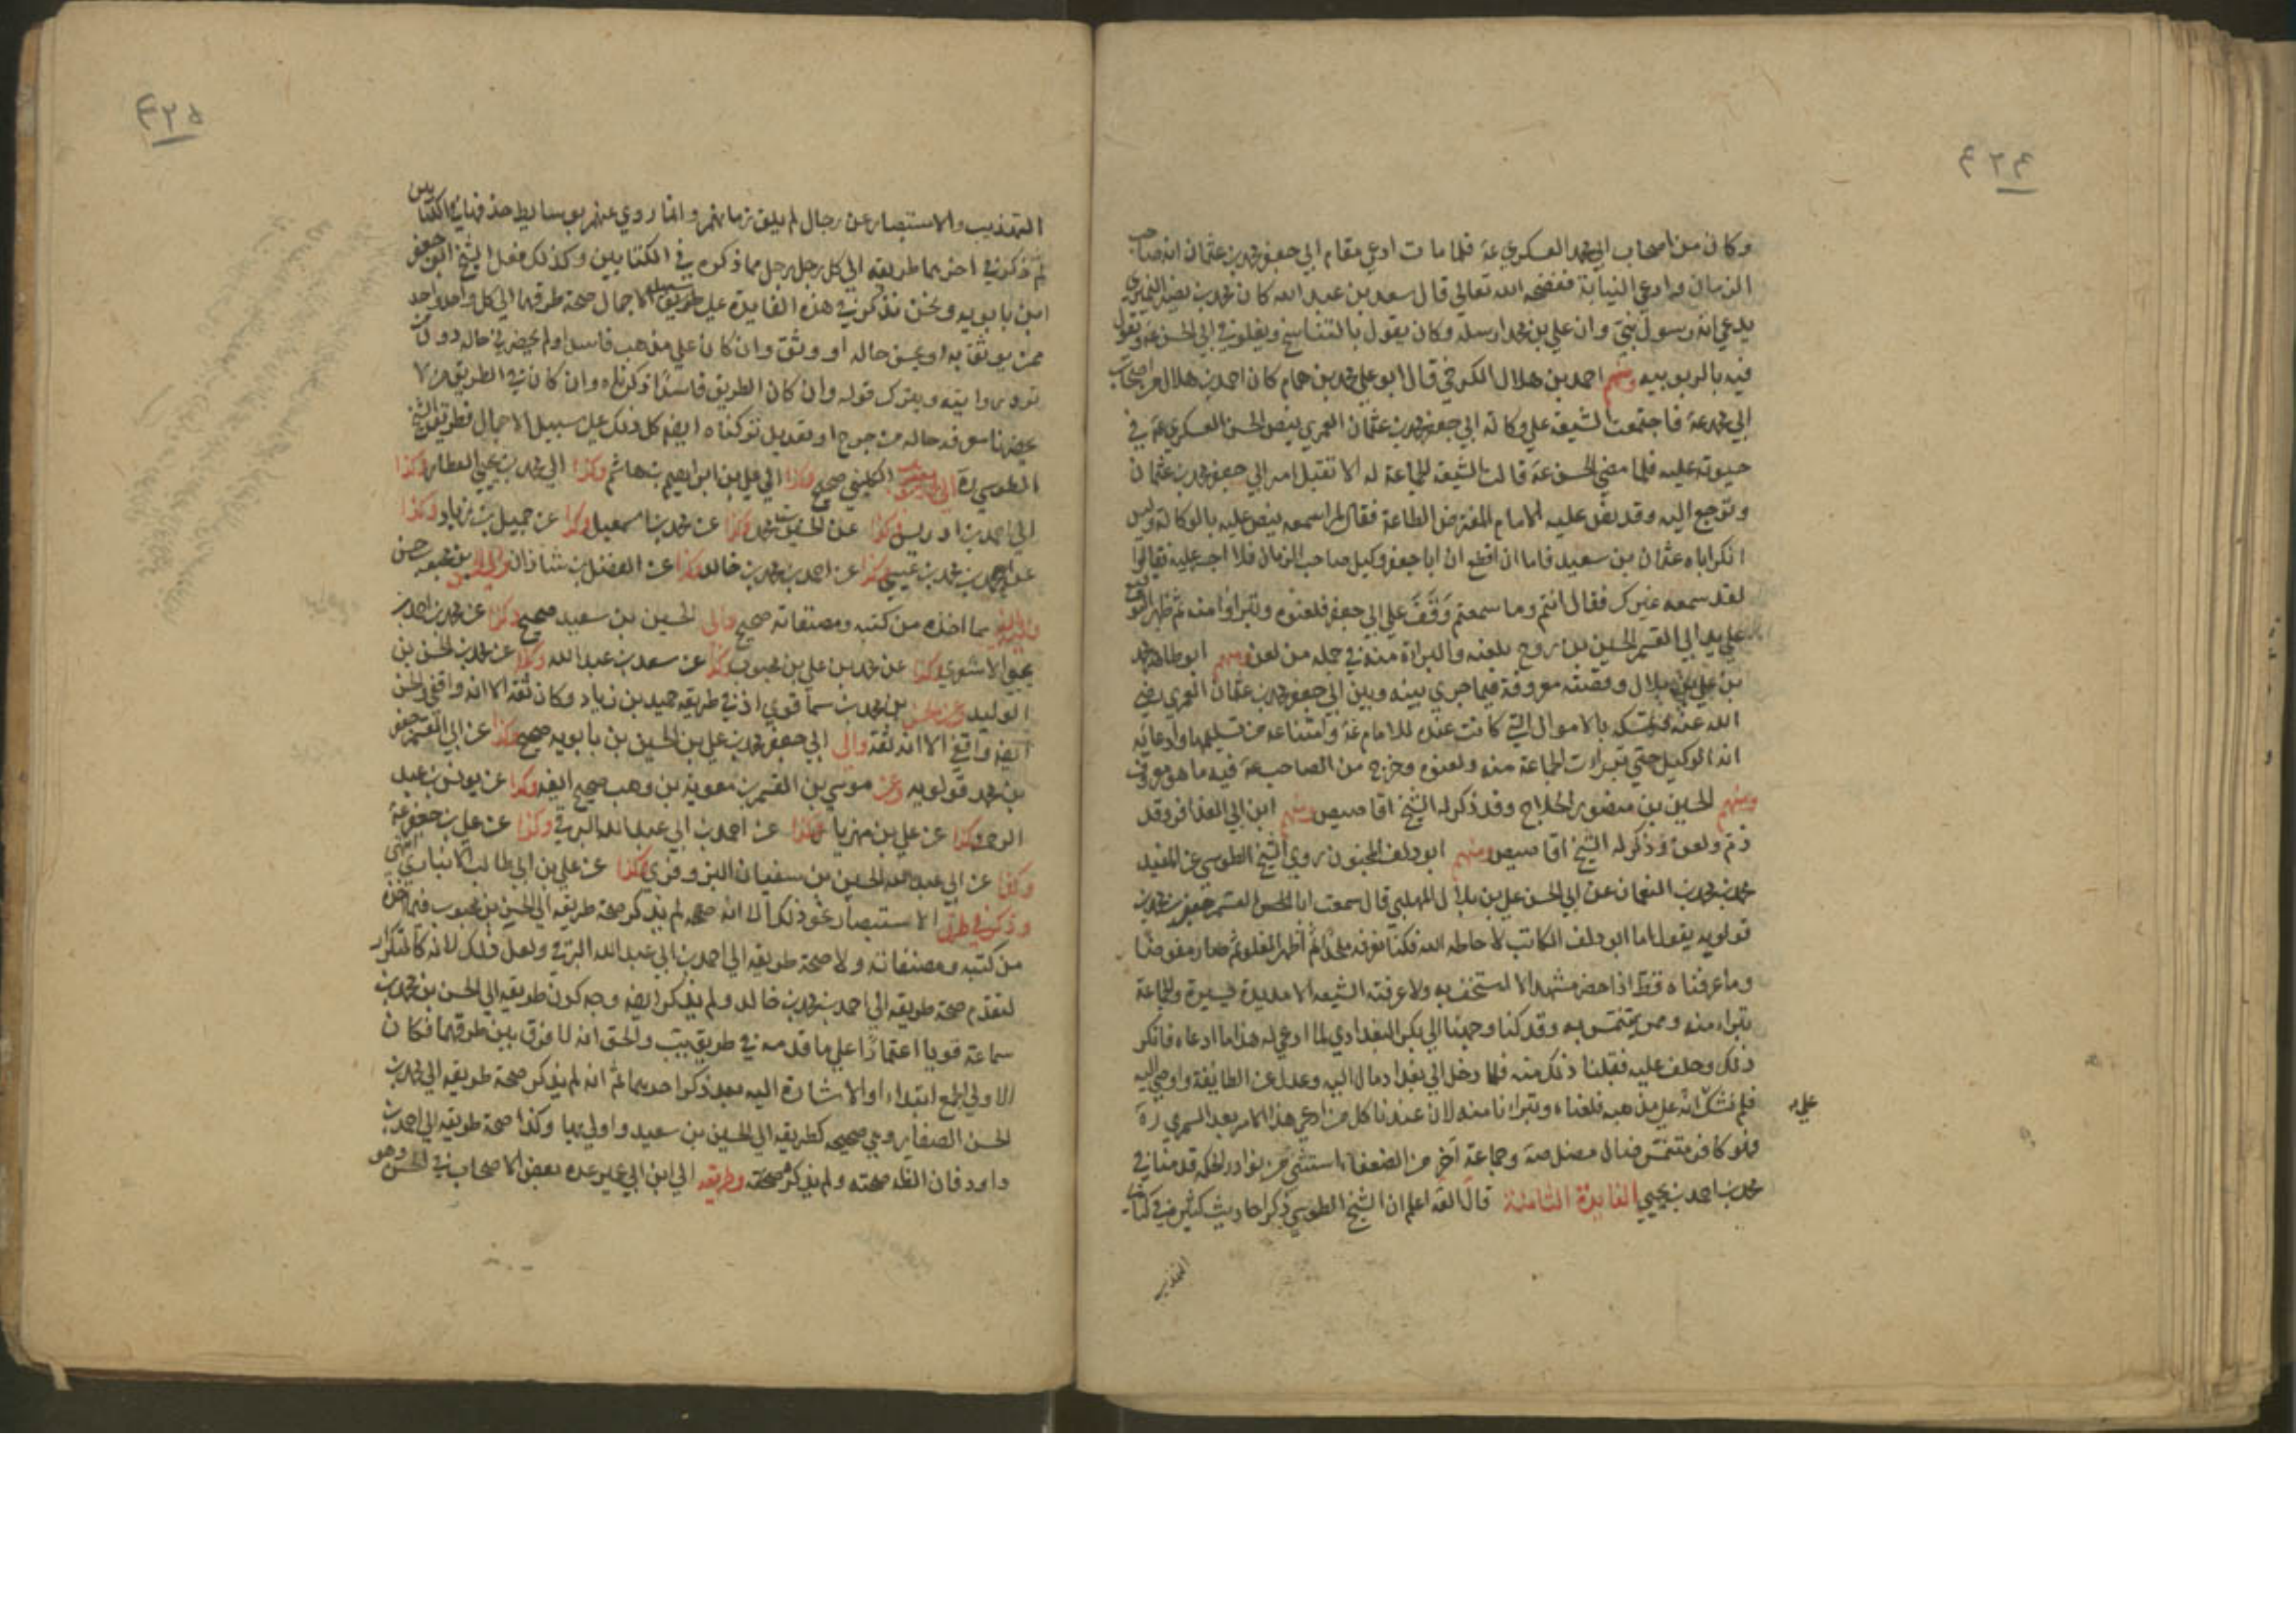 ٤٢٤
وكان من اصحاب ابي محمد العسكري عه فلما مات ادعى مقام ابي جعفر محمد بن عثمان انه صاحب
الزمان وادعى النيابة ففضحه الله تعالى قال سعد بن عبد الله كان محمد بن نصير النميري
يدعي انه رسول نبي وان علي بن محمد ارسله وكان يقول بالتناسخ ويغلو في ابي الحسن عه ويقول
فيه بالربوبيه ومنهم احمد بن هلال الكرخي قال ابو علي محمد بن همام كان احمد بن هلال من اصحاب
ابي محمد عه فاجتمعت الشيعة على وكالة ابي جعفر محمد بن عثمان العمري بنص الحسن العسكري عه في
حيوته عليه فلما مضى الحسن عه قالت الشيعه الجماعة له الا تقبل امر ابي جعفر محمد بن عثمان
وترجع اليه وقد نص عليه الامام المفترض الطاعة فقال لم اسمعه ينص عليه بالوكالة وليس
انكر اباه عثمان بن سعيد فاما ان اقطع ان ابا جعفر وكيل صاحب الزمان فلا اجسر عليه فقالوا
لقد سمعه غيرك فقال انتم وما سمعتم ووقف على ابي جعفر فلعنوه وتبراوا منه ثم ظهر التوقيع
على يد ابي القسم الحسين بن روح بلعنه والبراءة منه في جمله من لعن ومنهم ابو طاهر محمد
بن علي بن بلال وقصته معروفة فيما جرى بينه وبين ابي جعفر محمد بن عثمان العمري رضي
الله عنه وتمسكه بالاموال التي كانت عنده للامام عه وامتناعه من تسليمها وادعائه
انه الوكيل حتى تبرات الجماعة منه ولعنوه وخرج من الصاحب عه فيه ما هو معروف
ومنهم الحسين بن منصور الحلاج وقد ذكر له الشيخ اقاصيص ومنهم ابن ابي العذافر وقد
ذم ولعن وذكر له الشيخ اقاصيص ومنهم ابو دلف المجنون روى الشيخ الطوسي عن المفيد
محمد بن محمد بن النعمان عن ابي الحسن علي بن بلال المهلبي قال سمعت ابا القسم جعفر بن محمد بن
قولويه يقول اما ابو دلف الكاتب لا حاطه الله فكنا نعرفه ملحدا ثم اظهر الغلو ثم صار مفوضا
وما عرفناه قط اذا حضر مشهد الا استخف به ولا عرفته الشيعه الا مديدة يسيرة والجماعة
تتبراء منه وممن يتنمس به وقد كنا وجهنا الى ابي بكر البغدادي لما ادعى له هذا ما ادعاه فانكر
ذلك وحلف عليه فقبلنا ذلك منه فلما دخل الى بغداد مال اليه وعدل عن الطايفة واوصى اليه
فلم نشك انه على مذهبه فلعناه وتبرانا منه لان عندنا كل من ادعى هذا الامر بعد السمري ره
فهو كافر متنمس ضال مضل صه وجماعة آخر من الضعفاء استثنى من نوادر الحكمه قدمنا في
محمد بن احمد بن يحيى الفايدة الثامنة قال العه اعلم ان الشيخ الطوسي ذكر احاديث كثيرة في كتابي
التهذيب
٤٢٥
التهذيب والاستبصار عن رجال لم يلق زمانهم وانما روى عنهم بوسايط حذفها في الكتابين
ثم ذكر في اخرهما طريقه الى كل رجل رجل مما ذكره في الكتابين وكذلك فعل الشيخ ابو جعفر
ابن بابويه ونحن نذكر في هذه الفايدة على طريق سبيل الاجمال صحة طرقهما الى كل واحد واحد
ممن يوثق به او يحسن حاله او وثق وان كان على مذهب فاسد او لم يحضرني حاله دون من
ترد روايته ويترك قوله وان كان الطريق فاسدا ذكرناه وان كان في الطريق من لا
يحضرنا معرفه حاله من جرح او تعديل تركناه ايضا كل ذلك على سبيل الاجمال فطريق الشيخ
الطوسي ره الى محمد بن يعقوب الكليني صحيح وكذا الى علي بن ابراهيم بن هاشم وكذا الى محمد بن يحيى العطار وكذا
الى احمد بن ادريس وكذا عن الحسين بن محمد وكذا عن محمد بن اسمعيل وكذا عن حميد بن زياد وكذا
عن احمد بن محمد بن عيسى وكذا عن احمد بن محمد بن خالد وكذا عن الفضل بن شاذان والى الحسن بن محبوب حسن
مما اخذه من كتبه ومصنفاته صحيح والى الحسين بن سعيد صحيح وكذا عن محمد بن احمد بن
يحيى الاشعري وكذا عن محمد بن علي بن محبوب وكذا عن سعد بن عبد الله وكذا عن محمد بن الحسن بن
الوليد وعن الحسن بن محمد بن سماعه قوي اذ في طريقه حميد بن زياد وكان ثقه الا انه واقفي والحسن
ايضا واقفي الا انه ثقة والى ابي جعفر محمد بن علي بن الحسين بن بابويه صحيح وكذا عن ابي القسم جعفر
بن محمد قولويه وعن موسى بن القسم بن معوية بن وهب صحيح ايضا وكذا عن يونس بن عبد
الرحمن وكذا عن علي بن مهزيار وكذا عن احمد بن ابي عبد الله البرقي وكذا عن علي بن جعفر عه
وكذا عن ابي عبد الله الحسين بن سفيان البزوفري وكذا عن علي بن ابي طالب الانباري انتهى
وذكر في طرق الاستبصار نحو ذلك الا انه صه لم يذكر صحة طريقه الى الحسن بن محبوب فيما اخذه
من كتبه ومصنفاته ولا صحة طريقه الى احمد بن ابي عبد الله البرقي ولعل ذلك لانه كالتكرار
لتقدم صحة طريقه الى احمد بن محمد بن خالد ولم يذكر ايضا وجه كون طريقه الى الحسن بن محمد بن
سماعة قويا اعتمادا على ما قدمه في طريق يب والحق انه لا فرق بين طرقهما فكان
الاولى الجمع ابتداء او الاشارة اليه بعد ذكر احديهما ثم انه لم يذكر صحة طريقه الى محمد بن
الحسن الصفار وهي صحيحه كطريقه الى الحسين بن سعيد واولى بها وكذا صحة طريقه الى احمد بن
داود فان الظ صحته ولم يذكر صحته وطريقه الى ابن ابي عمير عده بعض الاصحاب في الحسن وهو